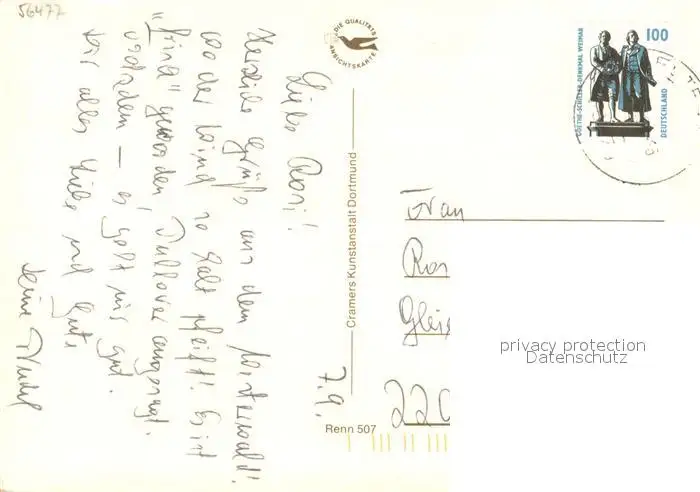 56477
DIE QUALITÄTS
ANSICHTSKARTE
Cramers Kunstanstalt Dortmund
Renn 507
7.9.
Liebe Rosi!
Herzliche Grüße aus dem Westerwald!
wo der Wind so kalt pfeift! Es ist
"frisch" geworden, Pullover angesagt.
trotzdem — es geht uns gut.
Dir alles Liebe und Gute
Deine
GOETHE-SCHILLER-DENKMAL WEIMAR
100
DEUTSCHLAND
Frau
Ros
Gleis
220
privacy protection
Datenschutz